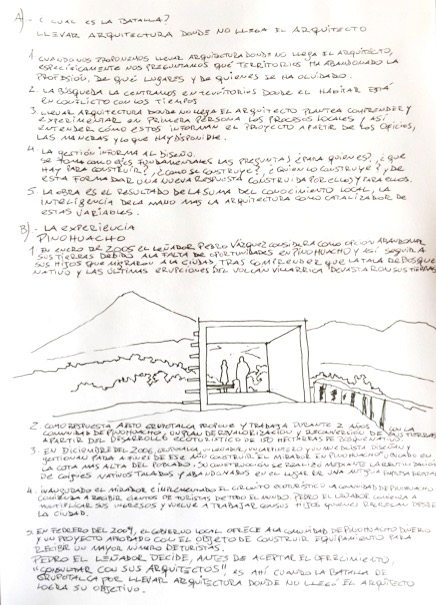 A) - ¿CUAL ES LA BATALLA?
LLEVAR ARQUITECTURA DONDE NO LLEGA EL ARQUITECTO
1. CUANDO NOS PROPONEMOS LLEVAR ARQUITECTURA DONDE NO LLEGA EL ARQUITECTO,
ESPECIFICAMENTE NOS PREGUNTAMOS QUÉ TERRITORIOS HA ABANDONADO LA
PROFESIÓN, DE QUÉ LUGARES Y DE QUIENES SE HA OLVIDADO.
2. LA BÚSQUEDA LA CENTRAMOS EN TERRITORIOS DONDE EL HABITAR ESTÁ
EN CONFLICTO CON LOS TIEMPOS
3. LLEVAR ARQUITECTURA DONDE NO LLEGA EL ARQUITECTO PLANTEA COMPRENDER Y
EXPERIMENTAR EN PRIMERA PERSONA LOS PROCESOS LOCALES Y ASÍ
ENTENDER CÓMO ESTOS INFORMAN EL PROYECTO A PARTIR DE LOS OFICIOS,
LAS MANERAS Y LO QUE HAY DISPONIBLE.
4. LA GESTIÓN INFORMA AL DISEÑO.
SE TOMA COMO EJES FUNDAMENTALES LAS PREGUNTAS ¿PARA QUIENES?, ¿QUE
HAY PARA CONSTRUIR?, ¿CÓMO SE CONSTRUYE?, ¿QUIEN LO CONSTRUYE? Y DE
ESTA FORMA DAR UNA NUEVA RESPUESTA CONSTRUIDA POR ELLOS Y PARA ELLOS.
5. LA OBRA ES EL RESULTADO DE LA SUMA DEL CONOCIMIENTO LOCAL, LA
INTELIGENCIA DE LA MANO MAS LA ARQUITECTURA COMO CATALIZADOR DE
ESTAS VARIABLES.
B) - LA EXPERIENCIA
PINOHUACHO
1 EN ENERO DE 2005 EL LEÑADOR PEDRO VÁZQUEZ CONSIDERA COMO OPCION ABANDONAR
SUS TIERRAS DEBIDO A LA FALTA DE OPORTUNIDADES EN PINOHUACHO Y ASÍ SEGUIR A
SUS HIJOS QUE MIGRARON A LA CIUDAD, TRAS COMPRENDER QUE LA TALA DE BOSQUE
NATIVO Y LAS ÚLTIMAS ERUPCIONES DEL VOLCÁN VILLARRICA DEVASTARON SUS TIERRAS
2. COMO RESPUESTA A ESTO GRUPOTALCA PROPONE Y TRABAJA DURANTE 2 AÑOS CON LA
COMUNIDAD DE PINOHUACHO UN PLAN DE REVALORIZACIÓN Y RECONVERSIÓN DE SUS TIERRAS
A PARTIR DEL DESARROLLO ECOTURÍSTICO DE 150 HECTÁREAS DE BOSQUE NATIVO.
3. EN DICIEMBRE DEL 2006, GRUPOTALCA, UN LEÑADOR, UN CARPINTERO Y UN MUEBLISTA DISEÑAN Y
GESTIONAN PARA ENERO DE ESE AÑO CONSTRUIR EL MIRADOR EN PINOHUACHO UBICADO EN
LA COTA MAS ALTA DEL POBLADO. SU CONSTRUCCION SE REALIZÓ MEDIANTE LA REUTILIZACIÓN
DE COIGÜES NATIVOS TALADOS Y ABANDONADOS EN EL LUGAR DE UNA ANTIGUA EXPLOTACIÓN
4. INAUGURADO EL MIRADOR E IMPLEMENTADO EL CIRCUITO ECOTURÍSTICO LA COMUNIDAD DE PINOHUACHO
COMIENZA A RECIBIR CIENTOS DE TURISTAS DE TODO EL MUNDO. PEDRO EL LEÑADOR COMIENZA A
MULTIPLICAR SUS INGRESOS Y VUELVE A TRABAJAR CON SUS HIJOS QUIENES REGRESAN DESDE
LA CIUDAD.
5. EN FEBRERO DEL 2009, EL GOBIERNO LOCAL OFRECE A LA COMUNIDAD DE PINOHUACHO DINERO
Y UN PROYECTO APROBADO CON EL OBJETO DE CONSTRUIR EQUIPAMIENTO PARA
RECIBIR UN MAYOR NUMERO DE TURISTAS.
PEDRO EL LEÑADOR DECIDE, ANTES DE ACEPTAR EL OFRECIMIENTO,
"CONSULTAR CON SUS ARQUITECTOS", ES AHÍ CUANDO LA BATALLA DE
GRUPOTALCA POR LLEVAR ARQUITECTURA DONDE NO LLEGÓ EL ARQUITECTO
LOGRA SU OBJETIVO.